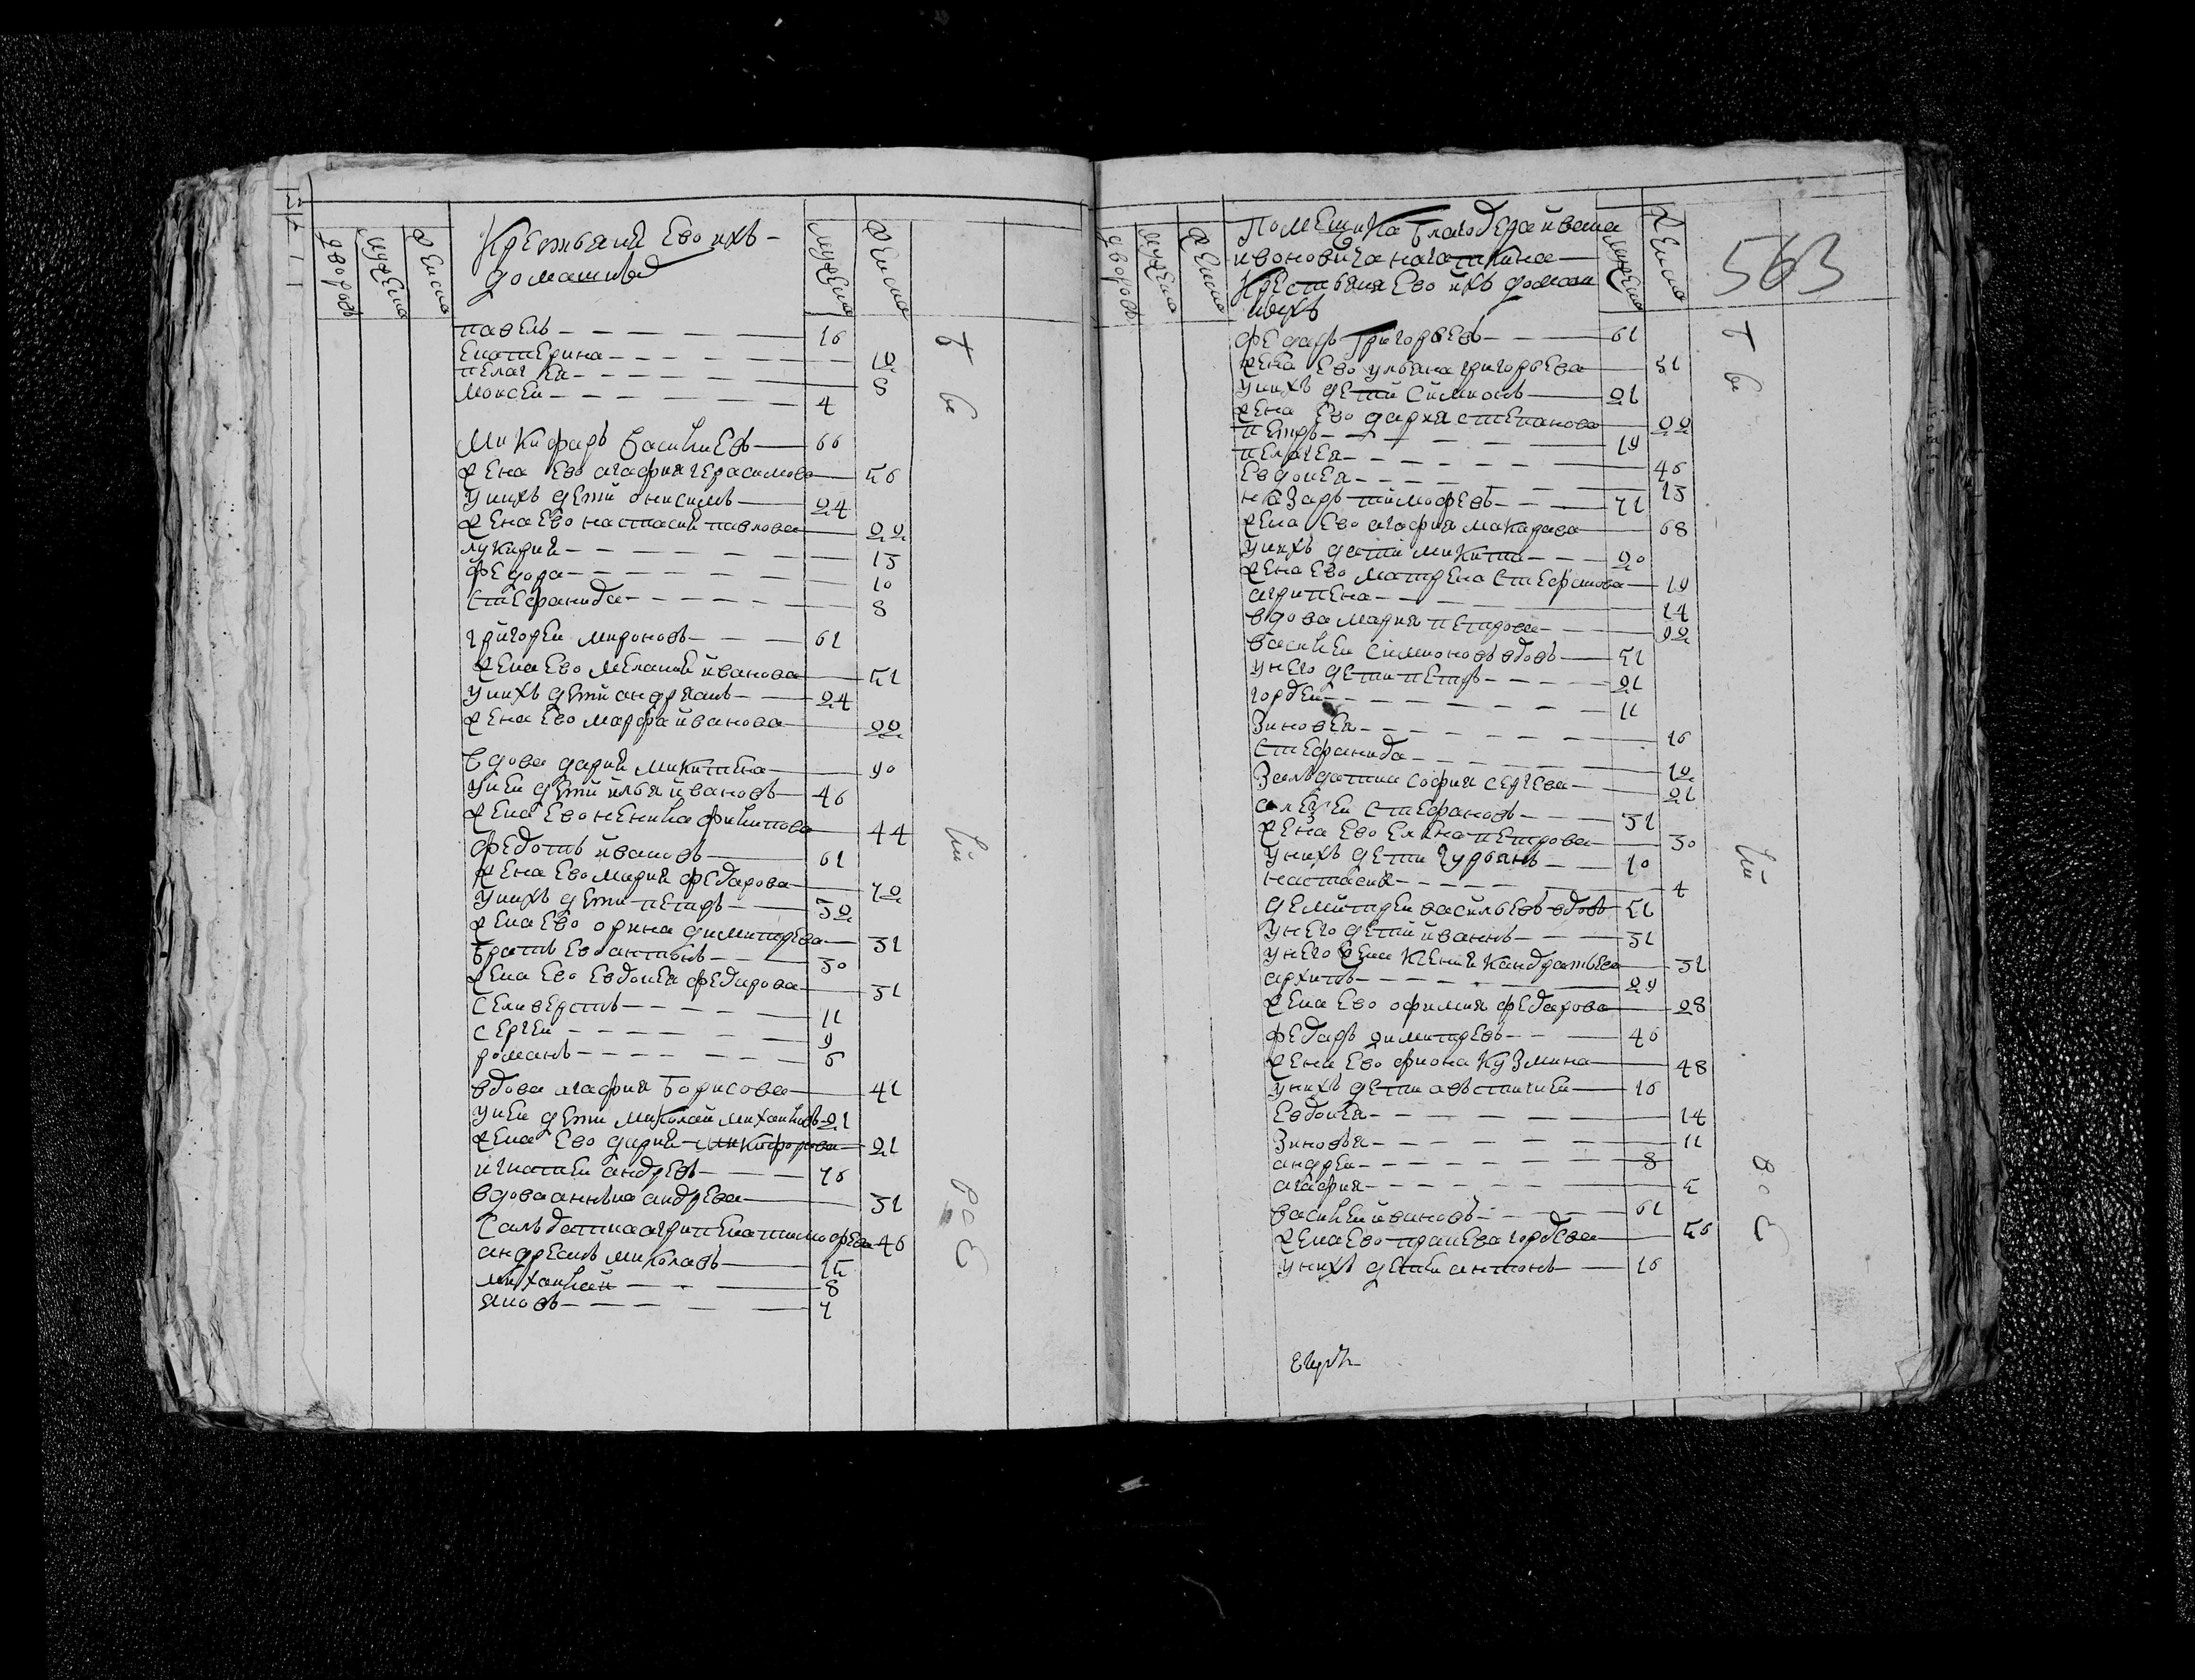 дворовъ
мужеска
женска
Крестьянѣ Ево ихъ
домашнѣ
мужеска
женска
павелъ 16
Екатерина 12
пелагея 8
моисеи 4
Микифаръ Василиевъ 66
жена Ево агафия герасимова 56
у нихъ дети онисимъ 24
жена Ево настасия павлова 22
лукирия 13
федора 10
Стефанида 8
григореи мироновъ 61
жена Ево мелания иванова 51
у нихъ дети андреянъ 24
жена Ево марфа иванова 22
вдова дария микитина 90
у неи дети илья ивановъ 46
жена Ево ненила филипова 44
федотъ ивановъ 61
жена Ево мария федарова 72
у нихъ дети петръ 32
жена Ево орина димитрева 31
братъ Ево антонъ 30
жена Ево Евдокея федарова 31
селиверстъ 11
сергеи 9
романъ 6
вдова агафия Борисова 41
у неи дети миколаи михаиловъ 21
жена Ево дария микифорова 21
игнатеи андревъ 76
вдова аннѣна андрева 31
Салъдатка агрипена тимофева 46
андреянъ миколавъ 15
михаила 8
яковъ 7
т
ве
ли
рос
дворовъ
мужеска
женска
Помещика благодера ивана
ивоновича нагаткина
Крестьяня Ево ихъ домаш
нихъ
мужеска
женска
563
федаръ Григорьевъ 61
жена Ево ульяна григорьева 51
у нихъ дети Симионъ 21
жена Ево дария степанова 22
петръ 19
пелагея 46
Евдокея 13
назаръ тимофевъ 71
жена Ево агафия макарава 68
у нихъ дети микита 20
жена Ево матрена Стефанова 19
агрипена 14
вдова мария петрова 92
василеи симионовъ вдовъ 51
у него дети петръ 21
гордеи 11
Зиновея 16
Стефанида 12
Залъдатка София сергева 21
алексеи Стефановъ 31
жена Ево Елена петрова 30
у нихъ дети гурьянъ 10
настасия 4
демитреи васильевъ вдовъ 56
у него дети иваннъ 31
у него жена ксения кандратьева 31
архипъ 29
жена Ево офимия федарова 28
федаръ димитревъ 46
жена Ево фиона кузмина 48
у нихъ дети авъстигнеи 16
Евдокея 14
Зиновья 11
андреи 8
агафия 5
василеи ивановъ 61
жена Ево прасева гордева 56
у нихъ дети антонъ 16
т
ве
ли
вос